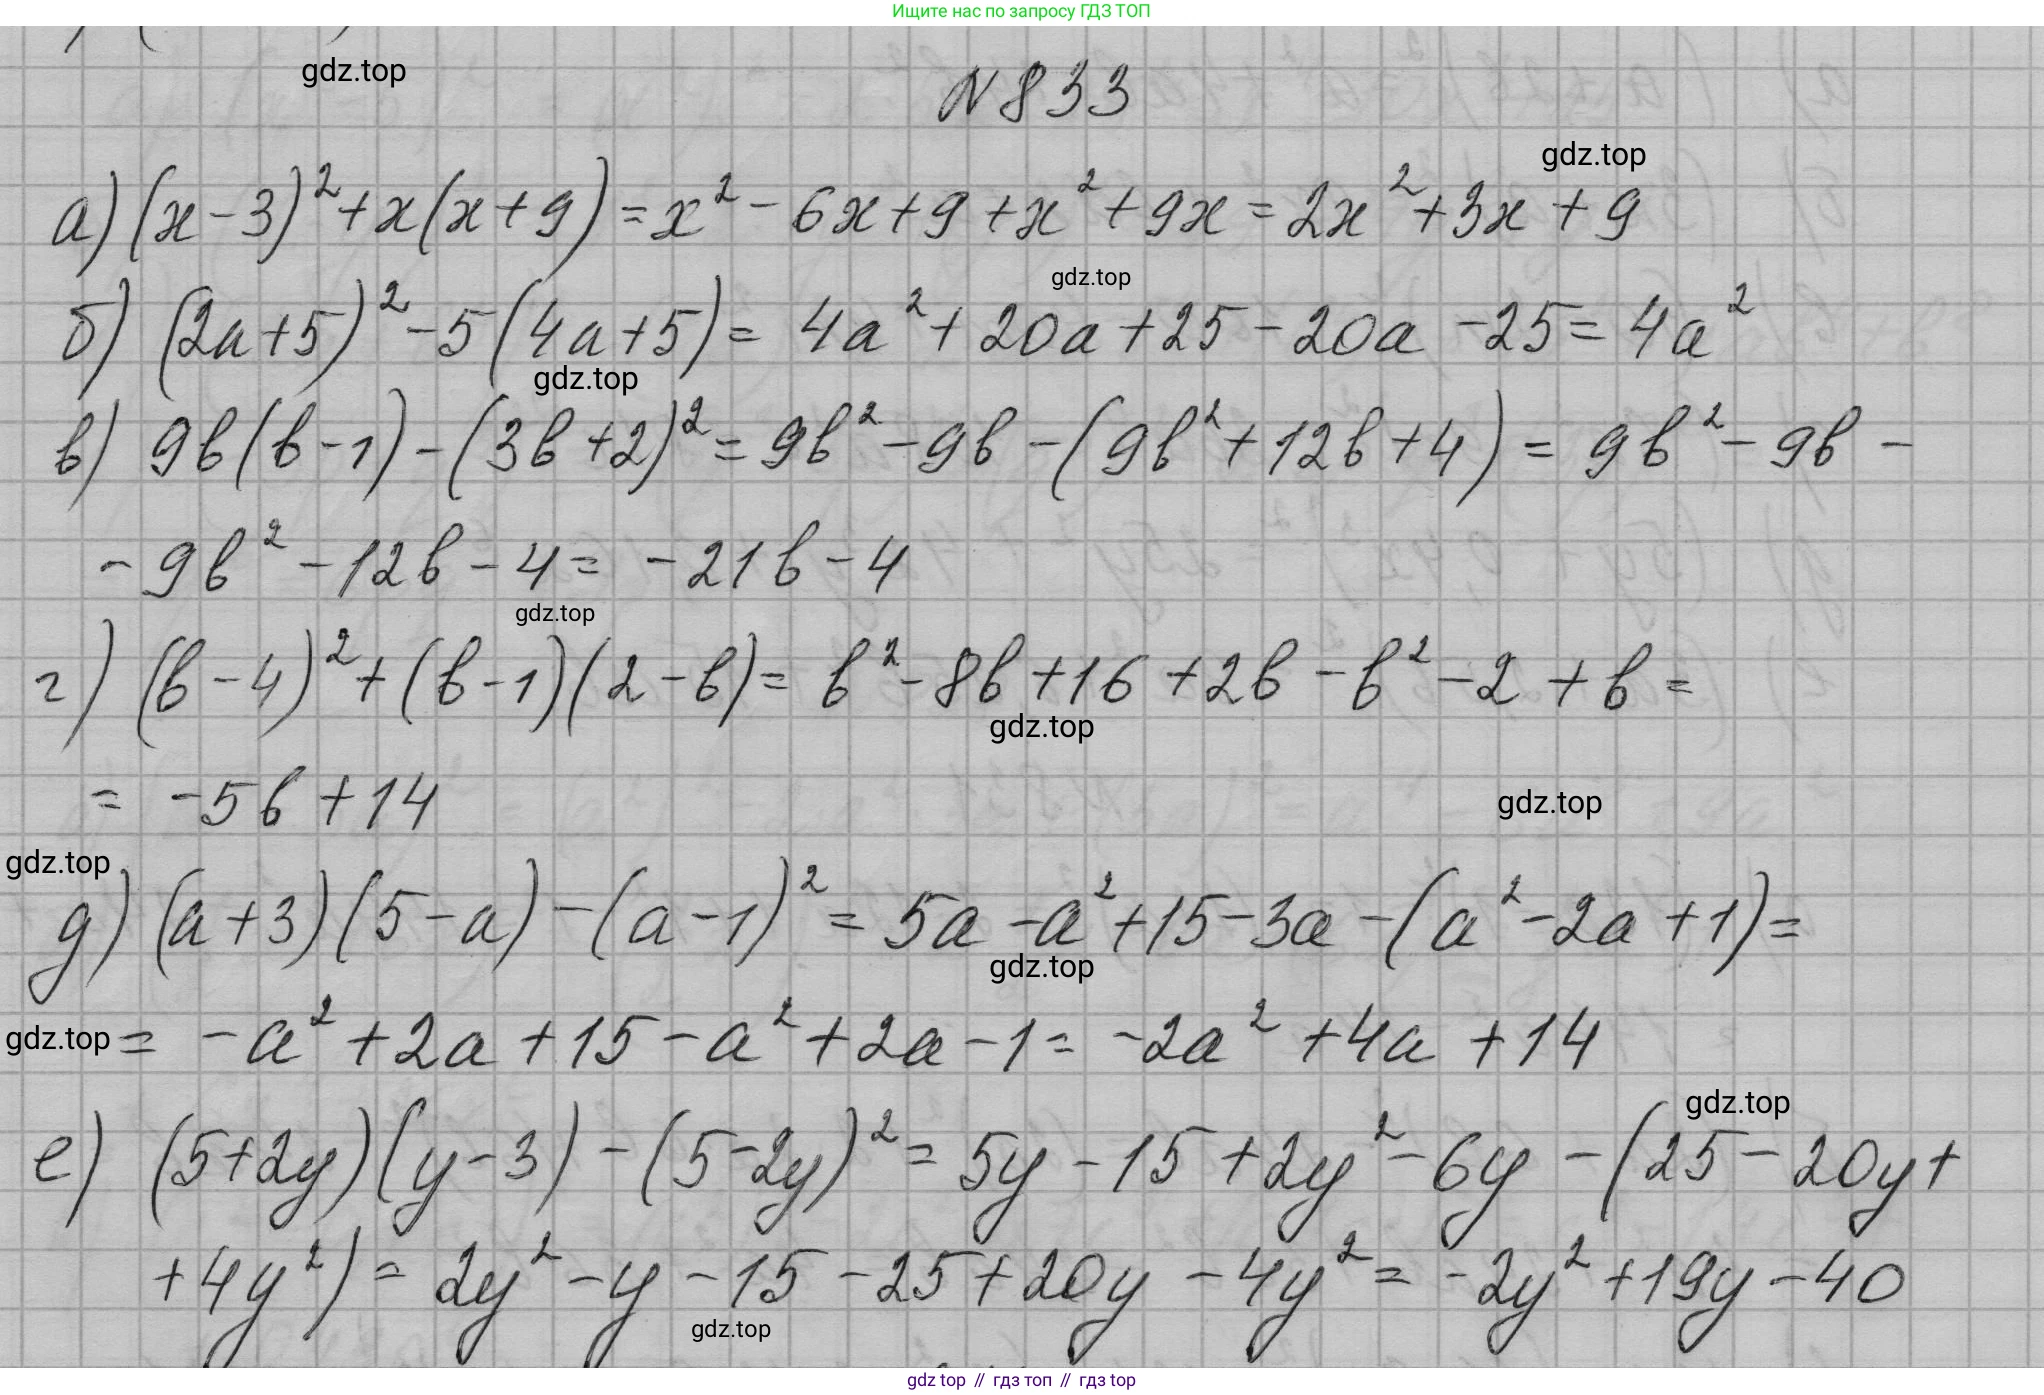 Ищите нас по запросу ГДЗ ТОП
gdz.top
N833
gdz.top
а) (x-3)²+x(x+9)=x²-6x+9+x²+9x=2x²+3x+9
gdz.top
б) (2a+5)²-5(4a+5)=4a²+20a+25-20a-25=4a²
gdz.top
в) 9b(b-1)-(3b+2)²=9b²-9b-(9b²+12b+4)=9b²-9b-
-9b²-12b-4=-21b-4
gdz.top
г) (b-4)²+(b-1)(2-b)=b²-8b+16+2b-b²-2+b=
gdz.top
=-5b+14
gdz.top
gdz.top
д) (a+3)(5-a)-(a-1)²=5a-a²+15-3a-(a²-2a+1)=
gdz.top
gdz.top
=-a²+2a+15-a²+2a-1=-2a²+4a+14
gdz.top
е) (5+2y)(y-3)-(5-2y)²=5y-15+2y²-6y-(25-20y+
+4y²)=2y²-y-15-25+20y-4y²=-2y²+19y-40
gdz.top
gdz top // гдз топ // гдз top